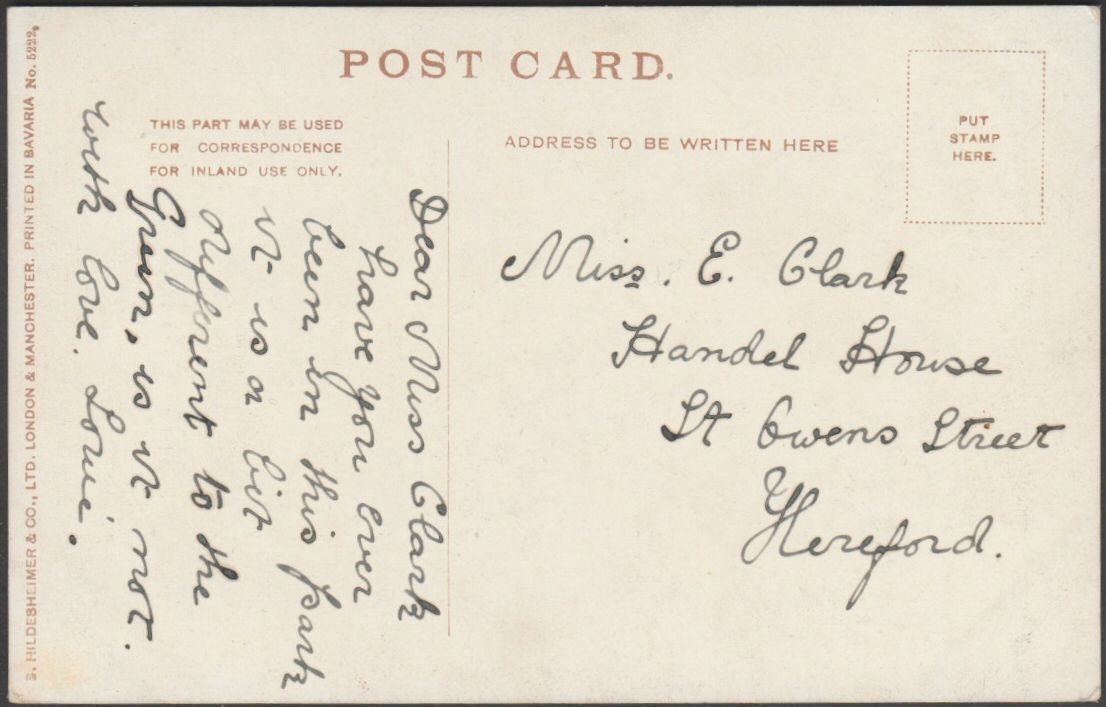 POST CARD.
THIS PART MAY BE USED
FOR CORRESPONDENCE
FOR INLAND USE ONLY.
ADDRESS TO BE WRITTEN HERE
PUT
STAMP
HERE.
Dear Miss Clark
have you ever
been in this park
it is a bit
different to the
Green, is it not.
with love. Louie.
Miss. E. Clark
Handel House
St Owens Street
Hereford.
S. HILDESHEIMER & CO., LTD. LONDON & MANCHESTER. PRINTED IN BAVARIA No. 5222.